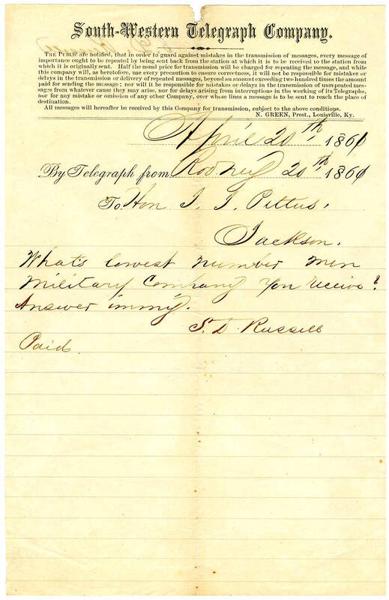 South-Western Telegraph Company.
THE PUBLIC are notified, that in order to guard against mistakes in the transmission of messages, every message of
importance ought to be repeated by being sent back from the station at which it is to be received to the station from
which it is originally sent. Half the usual price for transmission will be charged for repeating the message, and while
this company will, as heretofore, use every precaution to ensure correctness, it will not be responsible for mistakes or
delays in the transmission or delivery of repeated messages, beyond an amount exceeding two hundred times the amount
paid for sending the message; nor will it be responsible for mistakes or delays in the transmission of unrepeated messages
from whatever cause they may arise, nor for delays arising from interruptions in the working of its Telegraphs,
nor for any mistake or omission of any other Company, over whose lines a message is to be sent to reach the place of
destination.
All messages will hereafter be received by this Company for transmission, subject to the above conditions.
N. GREEN, Prest., Louisville, Ky.
April 20th 1861
By Telegraph from Rodney 20th 1861
To Hon J. J. Pettus.
Jackson.
Whats lowest number men
Military Company you receive?
Answer immy.
S. D. Russell
Paid.